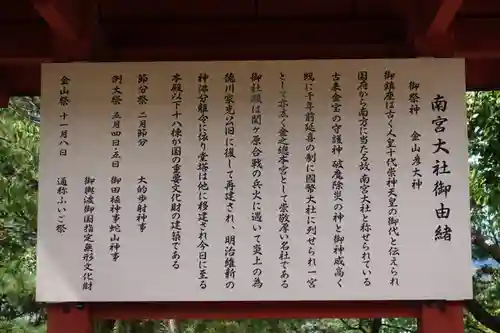 南宮大社御由緒
御祭神　金山彦大神
御鎮座は古く人皇十代崇神天皇の御代と伝えられ
国府から南方に当たる故南宮大社と称せられている
古来金宝の守護神 破魔除災の神と御神威高く
既に千年前延喜の制に國幣大社に列せられ一宮
として亦広く金之総本宮として崇敬厚い名社である
御社殿は関ヶ原合戦の兵火に遇いて炎上の為
徳川家光公旧に復して再建され、明治維新の
神仏分離令に依り堂塔は他に移建され今日に至る
本殿以下十八棟が国の重要文化財の建築である
節分祭 二月節分　大的歩射神事
例大祭 五月四日・五日　御田植神事蛇山神事
御輿渡御国指定無形文化財
金山祭 十一月八日　通称ふいご祭